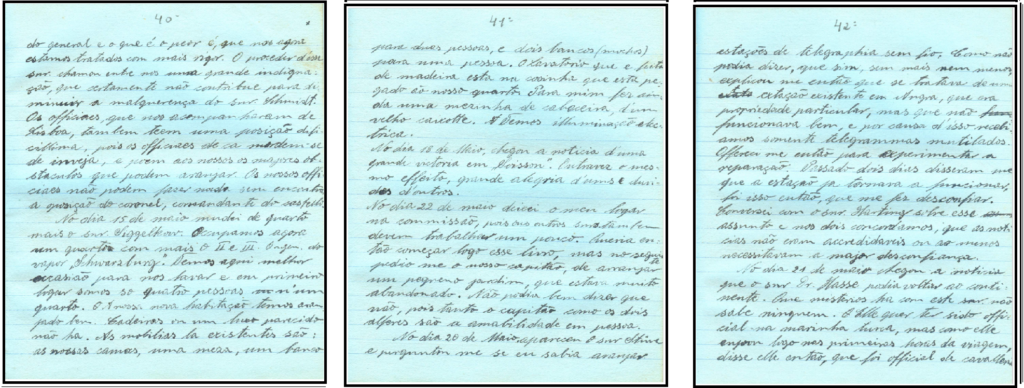 40-
do general e o que é o peor é, que nos agora
estamos tratados com mais rigor. O proceder d'esse
snr. chamou entre nos uma grande indigna-
ção, que certamente não contribue para di-
minuir a malquerença do snr Schmidt.
Os officiaes, que nos acompanharam de
Lisboa, tambem teem uma posição dif-
icillima, pois os officiaes de ca mordem-se
de inveja, e poem aos nossos os maiores ob-
staculos que podem aranjar. Os nossos offi-
ciaes não podem faser nada sem encontrar
a oposição do coronel, comandante do
No dia 15 de maio mudei de quarto
mais o snr Siggelkow. Occupamos agora
um quarto com mais o II e III Engen. do
vapor "Schwarzburg". Temos aqui melhor
occasião para nos lavar e em primeiro
logar somos so quatro pessoas n'um
quarto. A nossa nova habitação temos aran-
jado bem. Cadeiras ou um luxo parecido
não ha. As mobilias ca existentes são:
as nossas camas, uma mesa, um banco
41-
para dues pessoas, e dois bancos (mochos)
para uma pessoa. O lavatorio que e feito
de madeira esta na cosinha que esta pe-
gado ao nosso quarto. Para mim fez ain-
da uma mezinha de cabeceira, d'um
velho caixotte. Temos illuminação elec-
trica.
No dia 18 de Maio, chegou a noticia d'uma
grande victoria em
mo effeito, grande alegria d'uns e duvi-
das d'outros.
No dia 22 de maio deicei o meu logar
na commissão, pois os outros senhores tambem
devem trabalhar um pouco. Queria en-
tão começar logo esse livro, mas no seguin
pedio me o nosso capitão, de arranjar
um pequeno jardim, que estava muito
abandonado. Não podia bem dizer que
não, pois tanto o capitão como os dois
alferes são a amabilidade em pessoa.
No dia 20 de Maio, apareceu o snr
e perguntou me se eu sabia aranjar
42-
estações de telegraphia sem fio. Como não
podia dizer, que sim, sem mais nem menos,
explicou me então que se tratava de uma
estação existente em Angra, que era
propriedade particular, mas que não
funcionara bem, e por causa d'isso recebi-
amos somente telegrammas mutilados.
Offereci me então para experimentar a
reparação. Passado dois dias disseram me
que a estação ja tornara a funcionar,
foi isso então, que me fez desconfiar.
Conversei com o snr sobre esse
assunto e nos dois concordamos, que as noti-
cias não eram accreditaveis ou ao menos
necessitavam a major desconfiança.
No dia 21 de maio chegou a noticia
que o snr Dr. Hasse podia voltar ao conti-
nente. Que misterios ha com este snr. não
sabe ninguem. Elle quer ter sido offi-
cial na marinha turca, mas como elle
enjoou logo nas primeiras horas da viagem,
disse elle então, que foi official de cavallaria